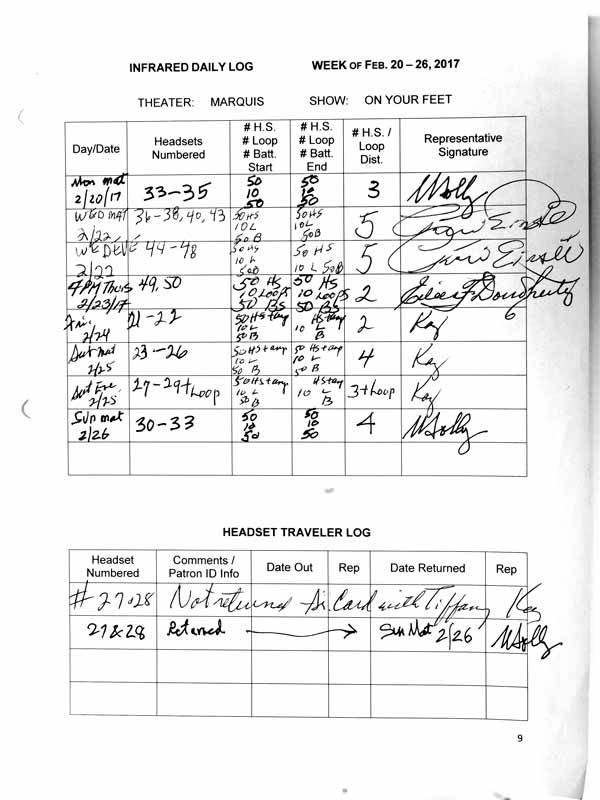 INFRARED DAILY LOG WEEK OF FEB. 20 – 26, 2017
THEATER: MARQUIS SHOW: ON YOUR FEET
Day/Date Headsets Numbered # H.S. # Loop # Batt. Start # H.S. # Loop # Batt. End # H.S. / Loop Dist. Representative Signature
Mon mat 2/20/17 33-35 50 10 50 50 10 50 3 W Solly
WED MAT 2/22 36-38, 40, 43 50 HS 10L 50B 50HS 10L 50B 5
WED EVE 2/22 44-48 50 HS 10 L 50B 50 HS 10 L 50B 5
7 PM Thurs 2/23/17 49, 50 50 HS 10 Loops 50 BS 50 HS 10 Loops 50 BS 2 Dougherty
Fri 2/24 21-22 50 HS 10 L 50 B 50 HS 10 L B 2 Kay
Sat Mat 2/25 23-26 50 HS 10 L 50 B 50 HS 10 L 50 B 4 Kay
Sat Eve 2/25 27-29+Loop 50 HS 10 L 50 B HS 10 L B 3+Loop Kay
Sun mat 2/26 30-33 50 10 50 50 10 50 4 W Solly
HEADSET TRAVELER LOG
Headset Numbered Comments / Patron ID Info Date Out Rep Date Returned Rep
# 27+28 Not returned Card with Tiffany Kay
27&28 Returned Sun Mat 2/26 W Solly
9